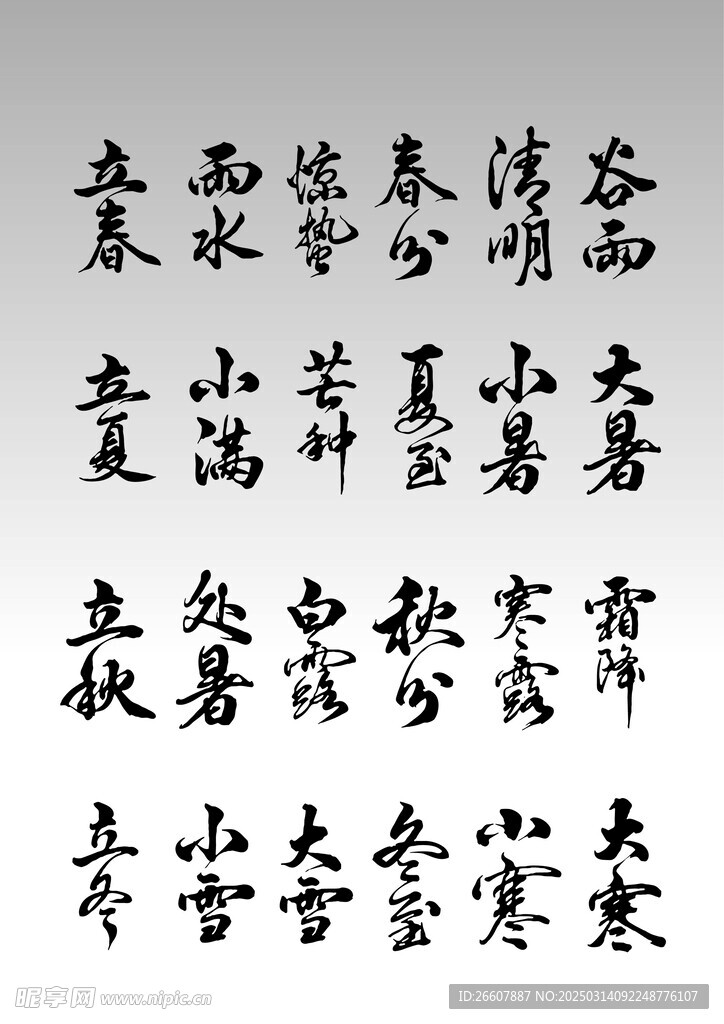 立春 雨水 惊蛰 春分 清明 谷雨
立夏 小满 芒种 夏至 小暑 大暑
立秋 处暑 白露 秋分 寒露 霜降
立冬 小雪 大雪 冬至 小寒 大寒
昵图网 www.nipic.cn
ID:26607887 NO:20250314092248776107